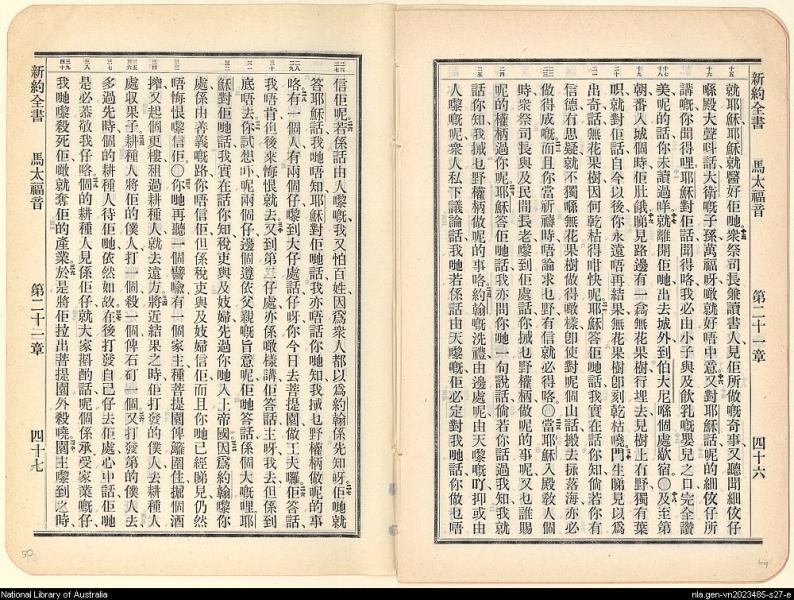 新約全書 馬太福音 第二十一章 四十六
就耶穌耶穌就醫好佢哋衆祭司長兼讀書人見佢所做嘅奇事又聽聞細伩仔
喺殿大聲呌話大衛嘅子孫萬福呀噉就好唔中意又對耶穌話呢的細伩仔所
講嘅你聞得哩耶穌對佢話聞得咯我必由小子與及飲乳嘅嬰兒之口完全讚
美呢的話你未讀過咩就離開佢哋出去城外到伯大尼喺個處歇宿〇及至第
朝番入城個時佢肚餓睇見路邊有一喬無花果樹行埋去見樹上冇野獨有葉
呮就對佢話自今以後你永遠唔再結果無花果樹卽刻乾枯嘵門生睇見以爲
出奇話無花果樹因何乾枯得咁快呢耶穌答佢哋話我實在話你知倘若你有
信德冇思疑就不獨喺無花果樹做得噉樣卽使對呢個山話搬去㧒落海亦必
做得成嘅而且你當祈禱時唔論求乜野有信就必得咯〇當耶穌入殿敎人個
時衆祭司長與及民間長老嚟到佢處話你㨢乜野權柄做呢的事呢又乜誰賜
呢的權柄過你呢耶穌答佢哋話我亦問你哋一句說話倘若你話過我知我就
話你知我㨢乜野權柄做呢的事咯約翰嘅洗禮由邊處呢由天嚟嘅吖抑或由
人嚟嘅呢衆人私下議論話我哋若係話由天嚟嘅佢必定對我哋話你做乜唔
信佢呢若係話由人嚟嘅我又怕百姓因爲衆人都以爲約翰係先知呀佢哋就
答耶穌話我哋唔知耶穌對佢哋話我亦唔話你哋知我㨢乜野權柄做呢的事
咯有一個人有兩個仔嚟到大仔處話仔呀你今日去菩提園做工夫囉佢答話
我唔肯但後來悔恨就去又到第二仔處亦係噉樣講佢答話主呀我去但係到
底唔去你試想吓呢兩個仔邊個遵依父親嘅旨意呢佢哋答話係個大嘅哩耶
穌對佢哋話我實在話你知稅吏與及妓婦先過你哋入上帝國因爲約翰嚟你
處係由善義嘅路你唔信佢但係稅吏與及妓婦信佢而且你哋已經睇見仍然
唔悔恨嚟信佢〇你哋再聽一個譬喻有一個家主種菩提園俾籬圍住掘個酒
搾又起個更樓租過耕種人就去遠方將近結果之時佢打發的僕人去耕種人
處收果子耕種人將佢的僕人打一個殺一個俾石矴一個又打發第的僕人去
多過先時個的耕種人待佢哋依然如故在後打發自己仔去佢處心中話佢哋
是必恭敬我仔咯個的耕種人見係佢仔就大家斟酌話呢個係承受家業嘅仔
我哋嚟殺死佢噉就奪佢的產業於是將佢拉出菩提園外殺嘵園主嚟到之時
新約全書 馬太福音 第二十一章 四十七
National Library of Australia
nla.gen-vn2023485-s27-e